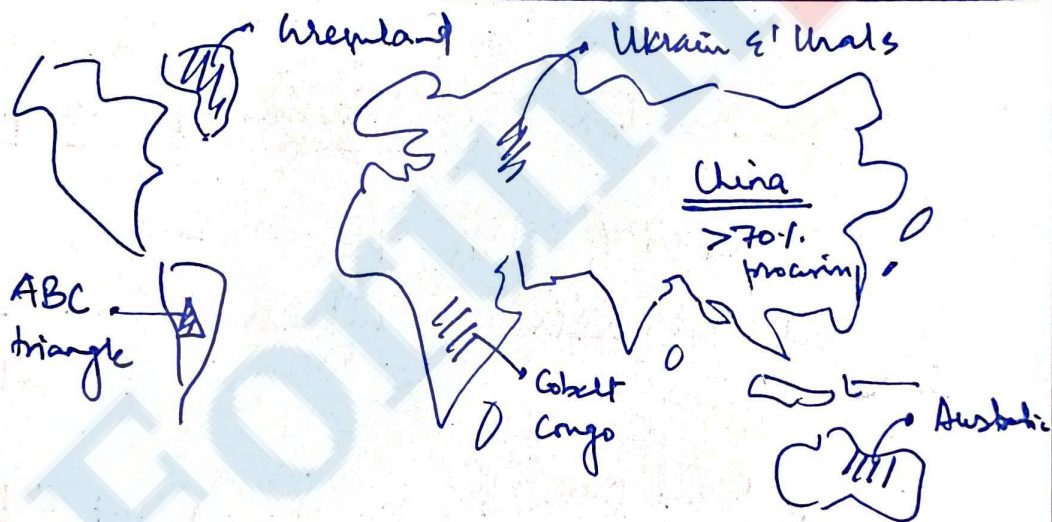 Greenland
Ukrain & Urals
China
>70%.
procurin
ABC
triangle
Cobalt
Congo
Australia